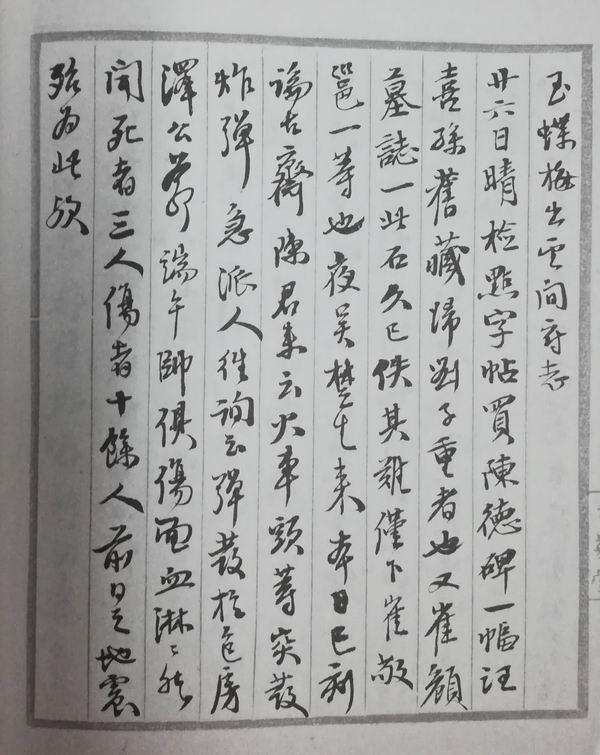 玉蝶梅出雲間府志
廿六日晴檢點字帖買陳德碑一幅汪
喜孫舊藏歸劉子重者也又崔顏
墓誌一此石久已佚其難僅下崔敬
邕一等也夜吳楚生來本日巳刻
論古齋陳君來云火車頭等突發
炸彈急派人往詢云彈發於包房
澤公端午帥俱傷面血淋〻然
聞死者三人傷者十餘人前日之地震
殆為此歟